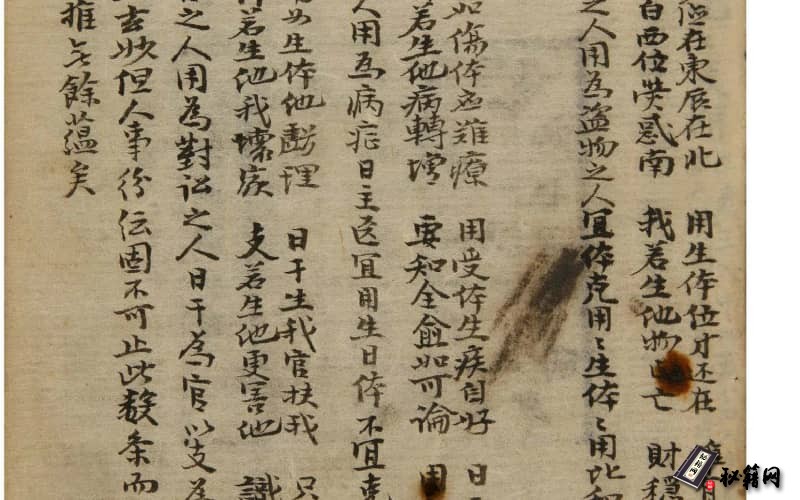 在東辰在北 用生体位才还在
白西位熒惑南 我若生他物 亡 財穩
之人用為盜物之人宜体克用用生体体用比和
如傷体應難療 用受体生疾自好 日
若生他病轉增 要知全愈如可論 用
人用為病症日主医宜用生日体不宜克
生体他虧理 日干生我官扶我 只
若生他我壞侯 支若生他更害他 訟
之人用為對訟之人日干為官以支為
玄妙但人事紛紜固不可止此数条而
推無餘蘊矣
秘籍网